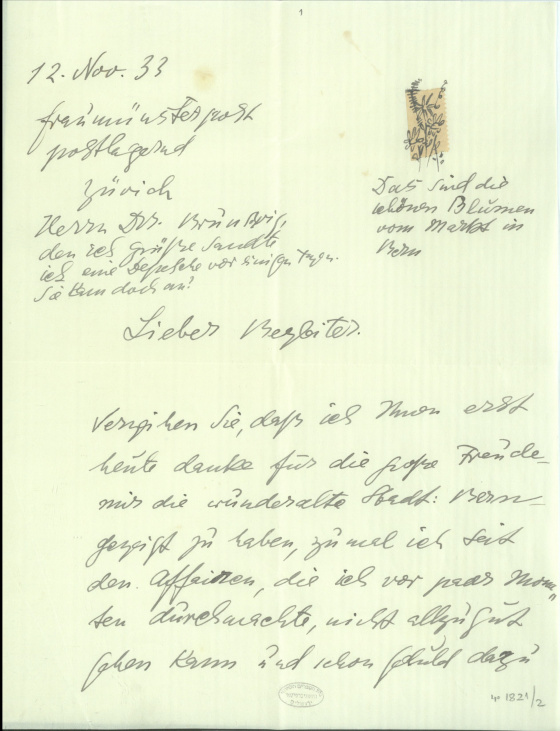 1
12. Nov. 33
Fraumünsterpost
postlagernd
Zürich
Herrn Drr. Brünswig,
den ich grüße sandte
ich eine Depesche vor einigen Tagen.
Sie kam doch an?
Das sind die
schönen Blumen
vom Markt in
Bern
Lieber Begleiter.
Verzeihen Sie, daß ich Ihnen erst
heute danke für die große Freude–
mir die wunderalte Stadt: Bern–
gezeigt zu haben, zumal ich seit
den Affairen, die ich vor paar Mona„
ten durchmachte, nicht allzugut
gehen kann und schon Geduld dazu
4° 1821/2